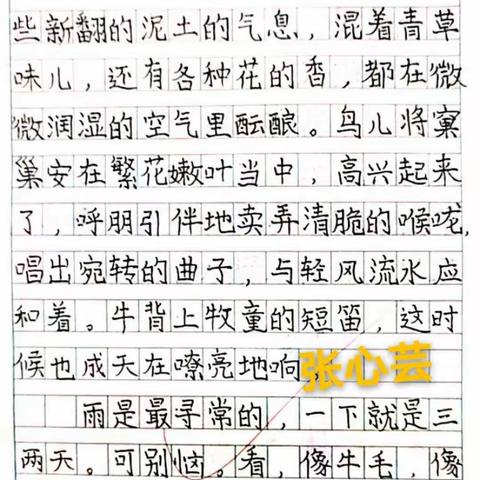 些新翻的泥土的气息，混着青草
味儿，还有各种花的香，都在微
微润湿的空气里酝酿。鸟儿将窠
巢安在繁花嫩叶当中，高兴起来
了，呼朋引伴地卖弄清脆的喉咙，
唱出宛转的曲子，与轻风流水应
和着。牛背上牧童的短笛，这时
候也成天在嘹亮地响
张心芸
雨是最寻常的，一下就是三
两天。可别恼。看，像牛毛，像